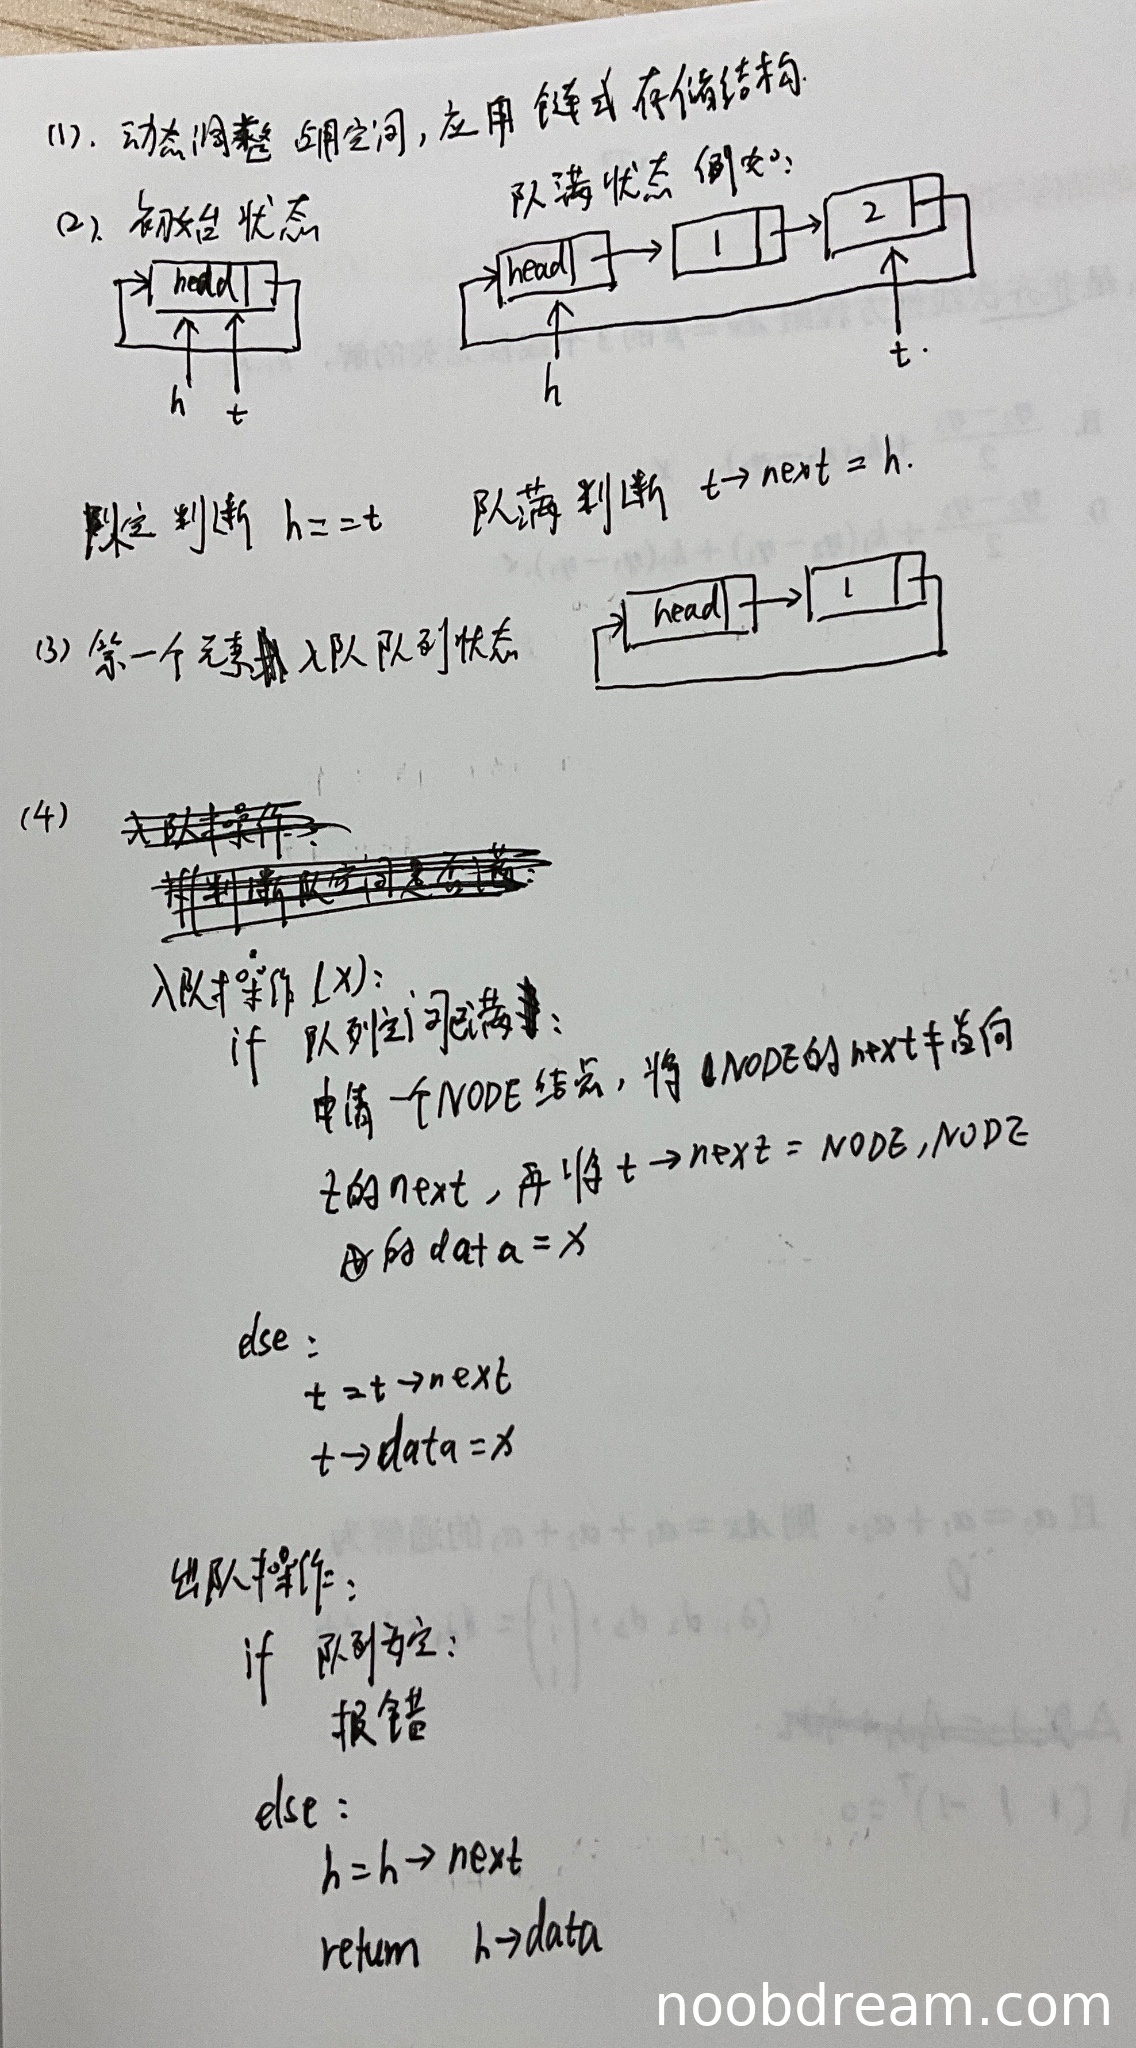 (1). 动态调整占用空间，应用链式存储结构.
(2). 初始状态
队满状态 例如:
head
h t
head 1 2
h
t.
队空判断 h==t
队满判断 t→next=h.
(3) 第一个元素 入队队列状态
head 1
(4)
入队操作:
判断队空间是否满:
入队操作(x):
if 队列空间已满:
申请一个NODE结点，将NODE的next指向
t的next，再将t→next=NODE,NODE
的data=x
else:
t=t→next
t→data=x
出队操作:
if 队列为空:
报错
else:
h=h→next
return h→data
noobdream.com